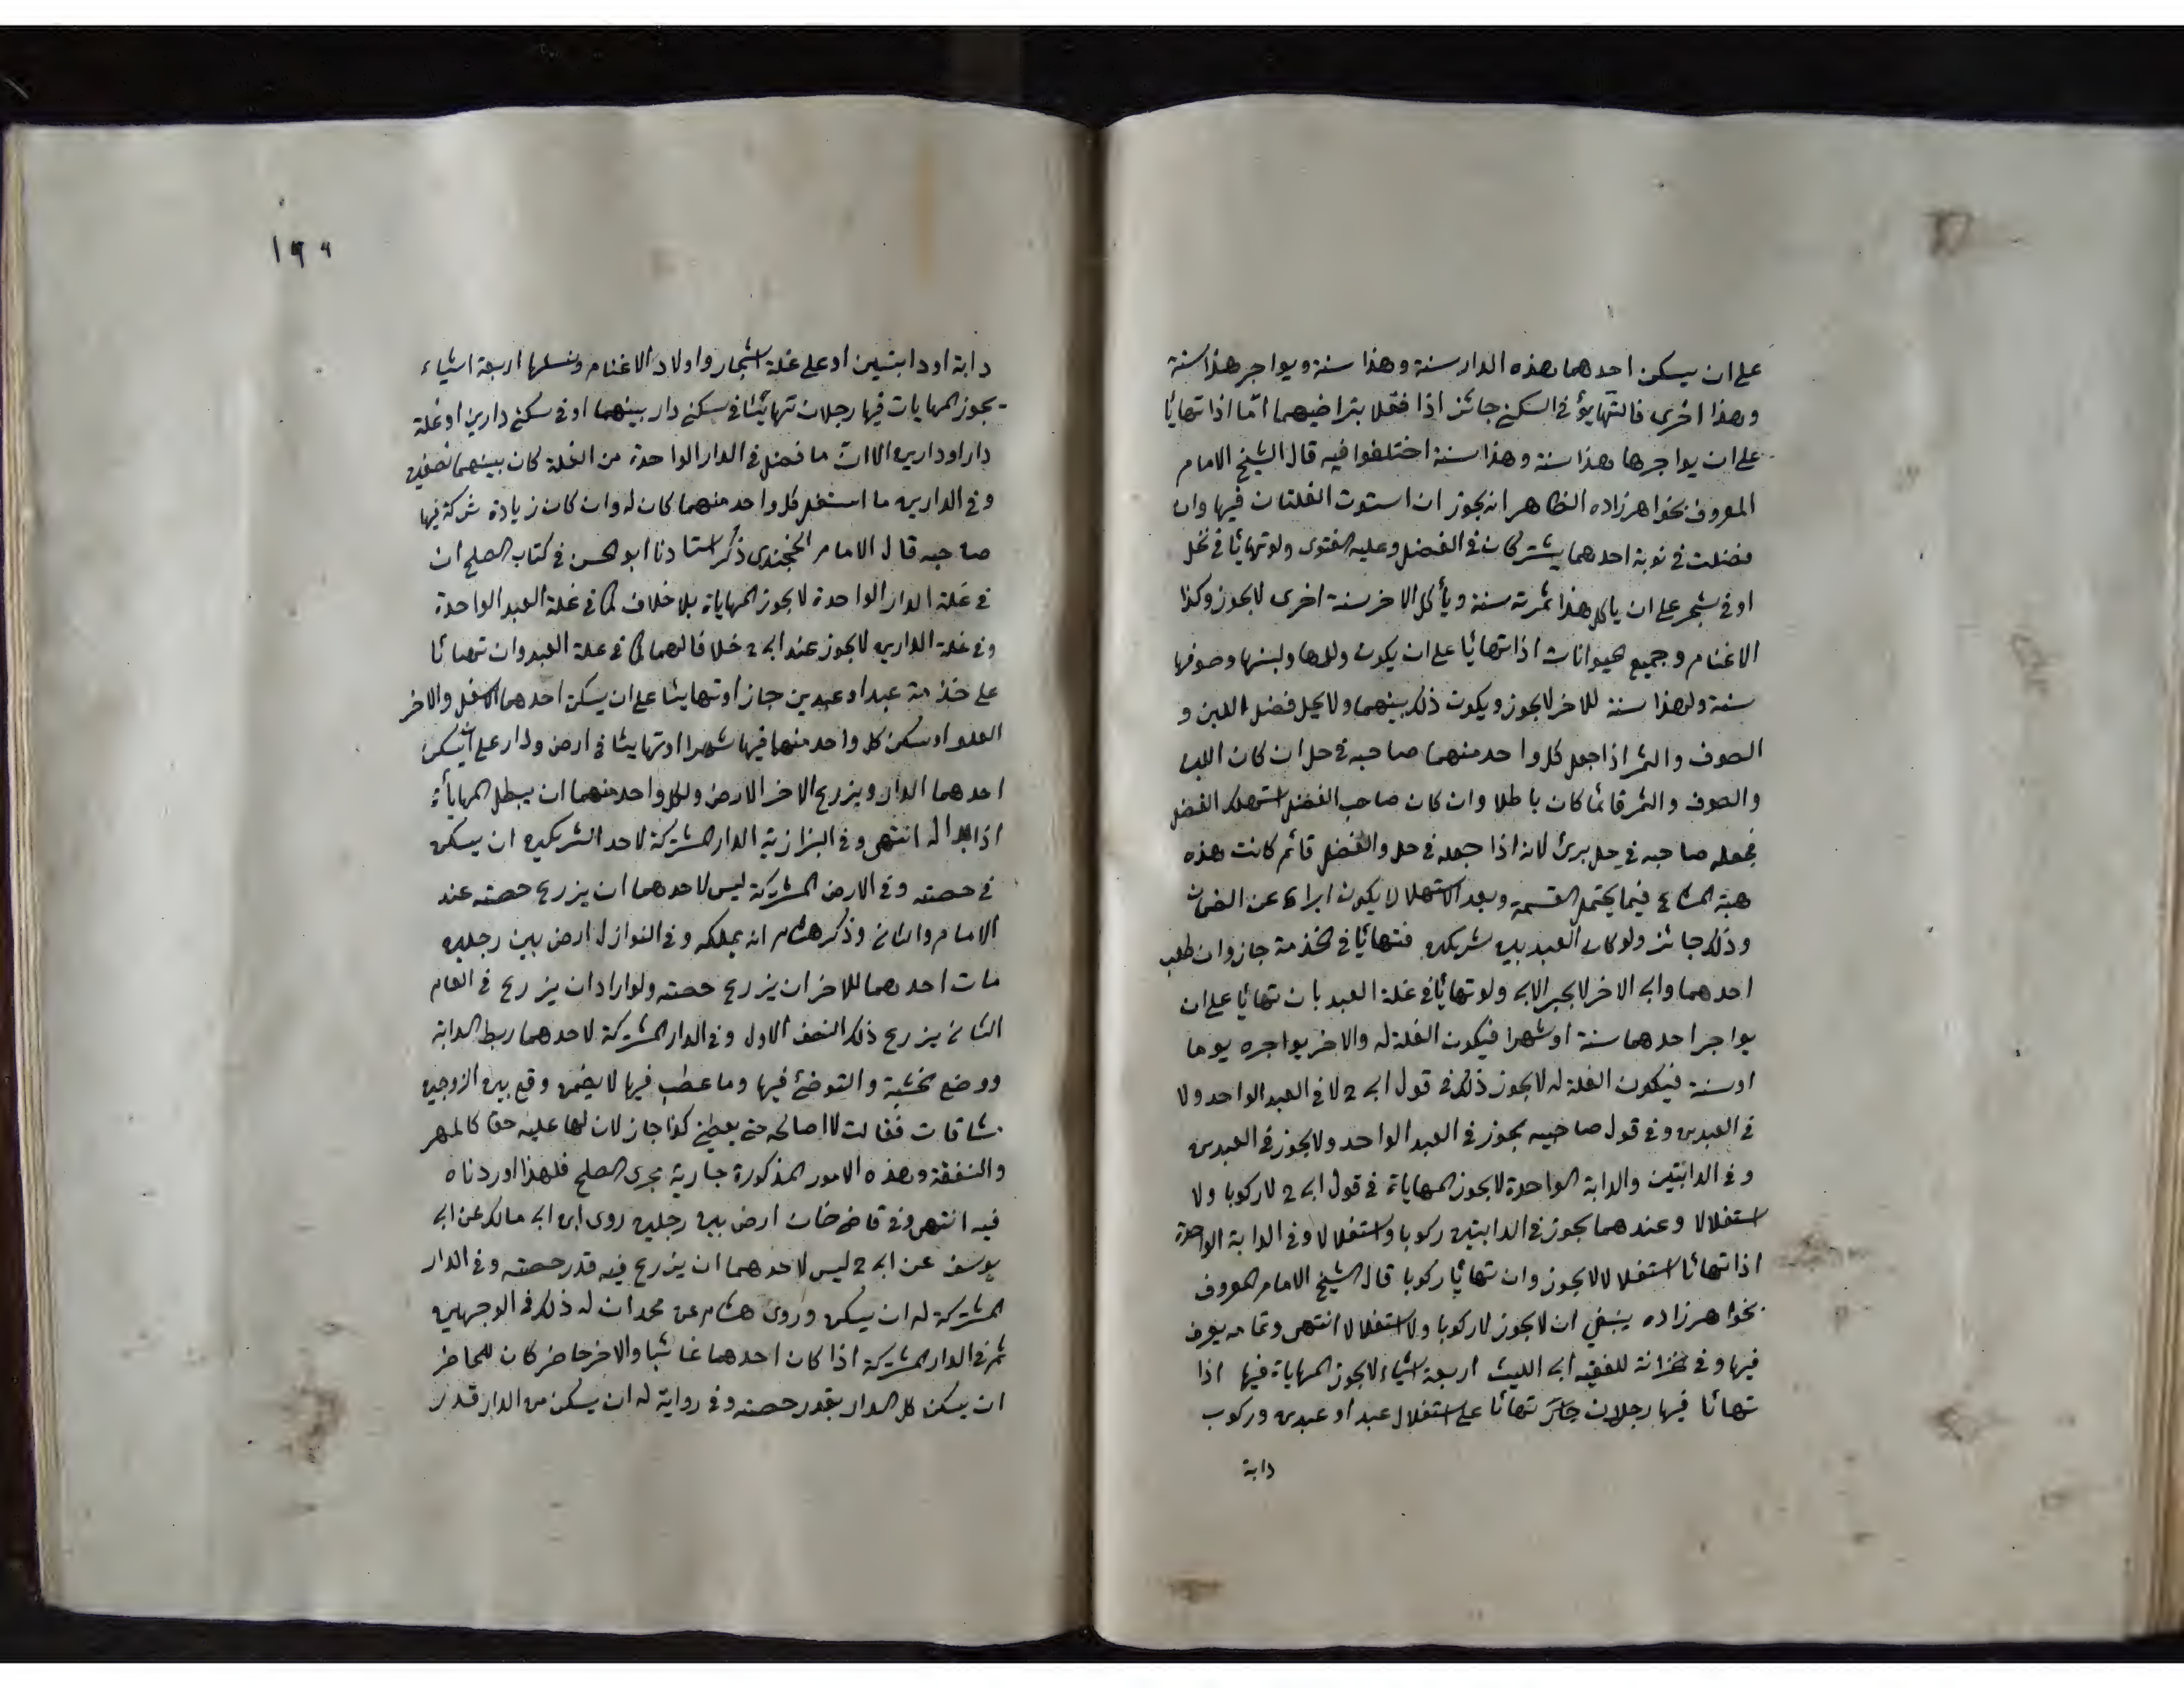 على ان يسكن احدهما هذه الدار سنة وهذا سنة ويواجر هذا سنة
وهذا اخرى فالتهايؤ في السكنى جائز اذا فعلا بتراضيهما امّا اذا تهائا
على ان يواجرها هذا سنة وهذا سنة اختلفوا فيه قال الشيخ الامام
المعروف بخواهرزاده الظاهر انه يجوز ان استوت الغلتان فيها وان
فضلت في نوبة احدهما يشتركان في الفضل وعليه الفتوى ولو تهائا في نخل
او في شجر على ان ياكل هذا ثمرته سنة ويأكل الاخر سنة اخرى لا يجوز وكذا
الاغنام وجميع الحيوانات اذا تهائا على ان يكون ولدها ولبنها وصوفها
سنة ولهذا سنة للاخر لا يجوز ويكون ذلك بينهما ولا يحل فضل اللبن و
الصوف والثمر اذا جعل كل واحد منهما صاحبه في حل ان كان اللبن
والصوف والثمر قائما كان باطلا وان كان صاحب الفضل استهلك الفضل
فجعله صاحبه في حل برئ لانه اذا جعله في حل والفضل قائم كانت هذه
هبة المشاع فيما يحتمل القسمة وبعد الاستهلاك يكون ابراء عن الضمان
وذلك جائز ولو كان العبد بين شريكين فتهائا في الخدمة جاز وان طلب
احدهما وابى الاخر لا يجبر الابى ولو تهائا في غلة العبد بان تهائا على ان
يواجر احدهما سنة او شهرا فيكون الغلة له والاخر يواجره يوما
او سنة فيكون الغلة له لا يجوز ذلك في قول ابى ح لا في العبد الواحد ولا
في العبدين وفي قول صاحبيه يجوز في العبد الواحد ولا يجوز في العبدين
وفي الدابتين والدابة الواحدة لا يجوز المهاياة في قول ابى ح لا ركوبا ولا
استغلالا وعندهما يجوز في الدابتين ركوبا واستغلالا وفي الدابة الواحدة
اذا تهائا استغلالا لا يجوز وان تهائا ركوبا قال الشيخ الامام المعروف
بخواهرزاده ينبغي ان لا يجوز لا ركوبا ولا استغلالا انتهى وتمامه يعرف
فيها وفي خزانة للفقيه ابى الليث اربعة اشياء لا يجوز المهاياة فيها اذا
تهائا فيها رجلان تهائا على استغلال عبد او عبدين وركوب
دابة
١٩٩
دابة او دابتين او على غلة اشجار واولاد الاغنام ونسلها اربعة اشياء
يجوز المهايات فيها رجلان تهايئا في سكنى دار بينهما او في سكنى دارين او غلة
دار او دارين الا ان ما فضل في الدار الواحدة من الغلة كان بينهما نصفين
وفي الدارين ما استغل كل واحد منهما كان له وان كان زيادة شركة فيها
صاحبه قال الامام الخجندى ذكر استادنا ابو الحسن في كتاب الصلح ان
في غلة الدار الواحدة لا يجوز المهاياة بلا خلاف كما في غلة العبد الواحدة
وفي غلة الدارين لا يجوز عند ابى ح خلافا لهما كما في غلة العبد وان تهائا
على خدمة عبد او عبدين جاز او تهايئا على ان يسكن احدهما السفل والاخر
العلو او سكن كل واحد منهما فيها شهرا او تهايئا في ارض ودار على ان يسكن
احدهما الدار ويزرع الاخر الارض ولكل واحد منهما ان يبطل المهايأة
اذا بدا له انتهى وفي البزازية الدار المشتركة لاحد الشريكين ان يسكن
في حصته وفي الارض المشتركة ليس لاحدهما ان يزرع حصته عند
الامام والثانى وذكر هشام انه يملكه وفي النوازل ارض بين رجلين
مات احدهما للاخر ان يزرع حصته ولو اراد ان يزرع في العام
الثانى يزرع ذلك النصف الاول وفي الدار المشتركة لاحدهما ربط الدابة
ووضع الخشبة والتوضئ فيها وما عطب فيها لا يضمن وقع بين الزوجين
مشاقات فقالت لا اصالح حتى يعطى كذا جاز لان لها عليه حقا كالمهر
والنفقة وهذه الامور المذكورة جارية مجرى الصلح فلهذا اوردناه
فيه انتهى وفي قاضى خان ارض بين رجلين روى ابن ابى مالك عن ابى
يوسف عن ابى ح ليس لاحدهما ان يزرع فيه قدر حصته وفي الدار
المشتركة له ان يسكن وروى هشام عن محمد ان له ذلك في الوجهين
ثم في الدار المشتركة اذا كان احدهما غائبا والاخر حاضر كان للحاضر
ان يسكن كل الدار بقدر حصته وفي رواية له ان يسكن من الدار قدر